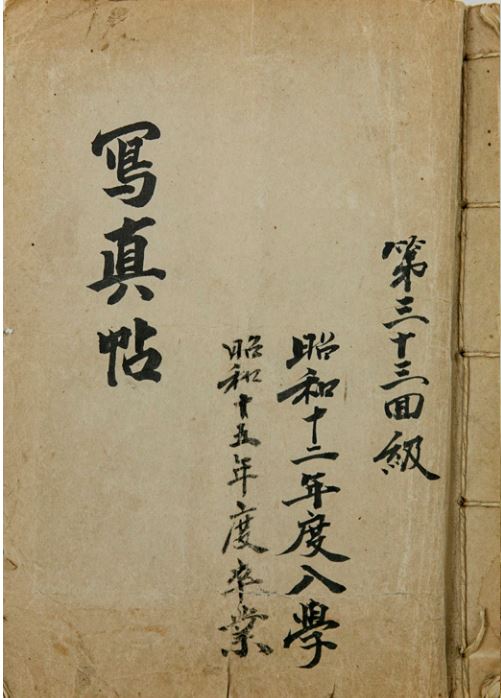 第三十三回級
昭和十二年度入學
昭和十五年度卒業
寫真帖